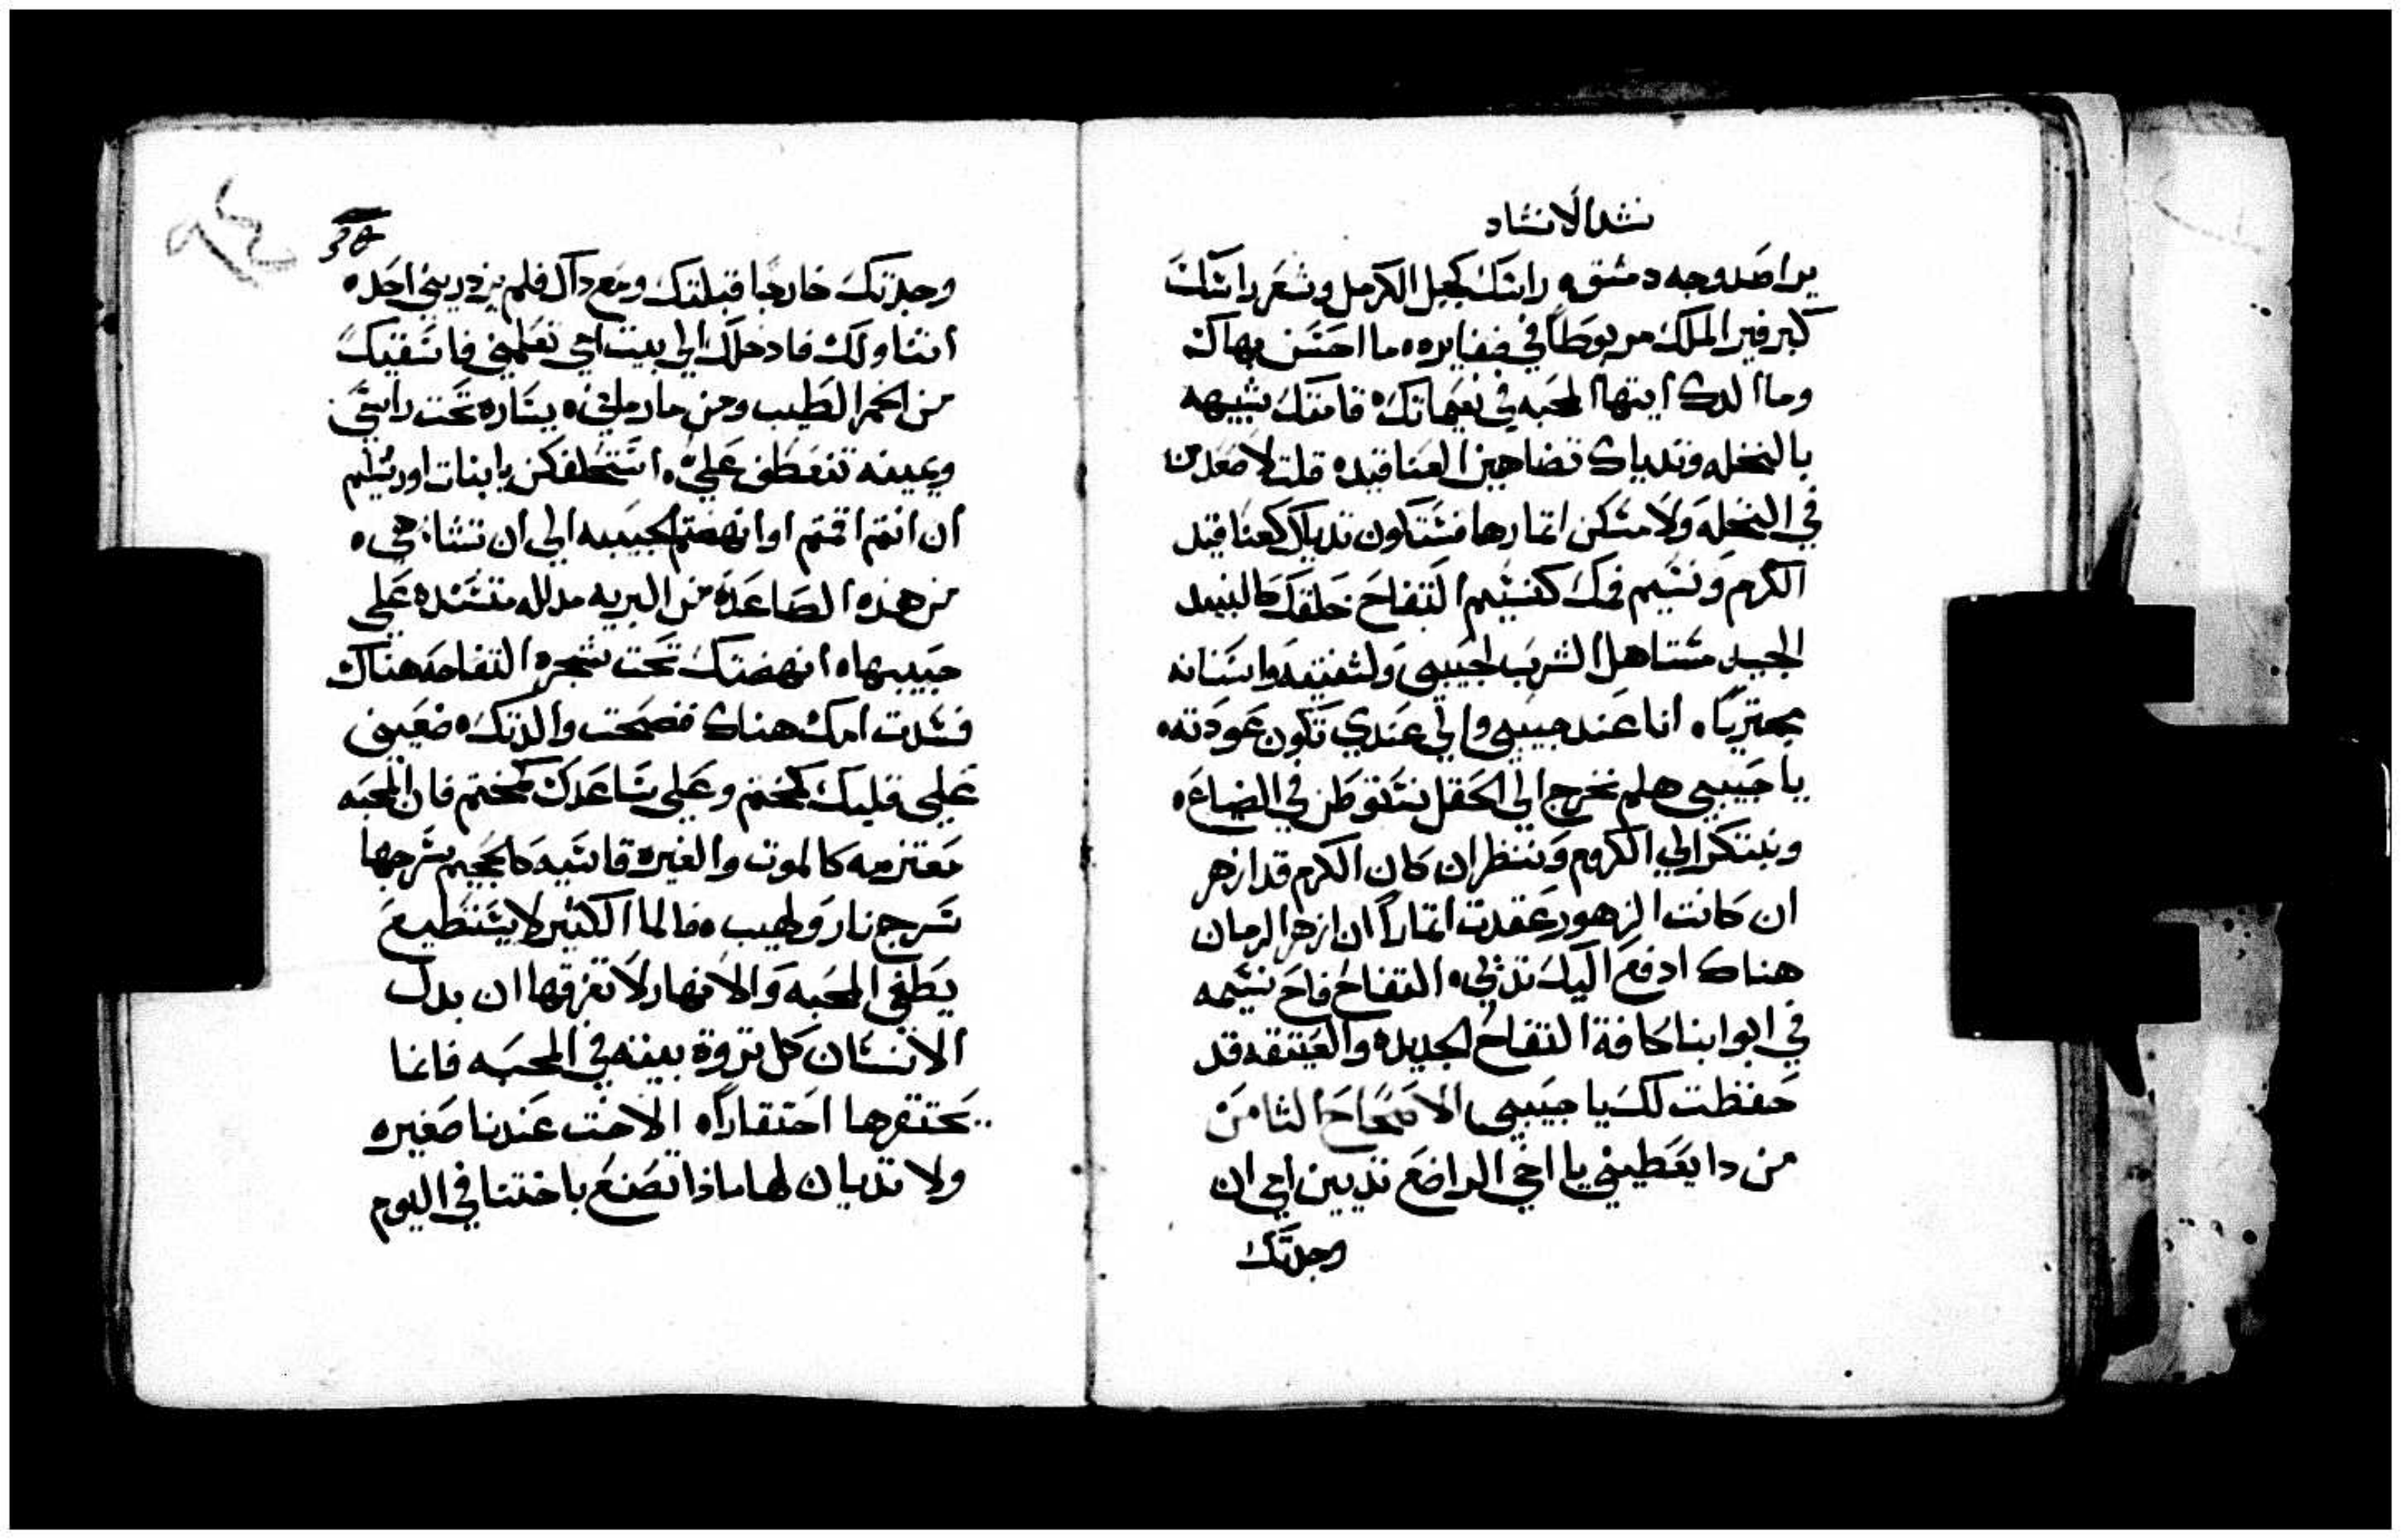 نشد الانشاد
يراصد وجه دمشق ه راسك كجبل الكرمل وشعر راسك
كبرفير الملك مربوطا في ضفايره ه ما احسن بهاك
وما الدك ايتها المحبه في نعماتك ه قامتك شبيهه
بالنخله وتدياك تضاهين العناقيد ه قلت لاصعدن
في النخله ولامسكن اتمارها فستكون تدياك كعناقيد
الكرم ونسيم فمك كنسيم التفاح حلقك كالنبيد
الجيد مستاهل الشرب لحبيبي ولشفتيه واسنانه
مجتريا ه انا عند حبيبي والي عندي تكون عودته ه
يا حبيبي هلم نخرج الي الحقل نستوطن في الضياع ه
ونبتكر الي الكروم وننظر ان كان الكرم قد ازهر
ان كانت الزهور عقدت اتمارا ان ازهر الرمان
هناك ادفع اليك تديي ه التفاح فاح نسيمه
في ابوابنا كافة التفاح الجديده والعتيقه قد
حفظت لك يا حبيبي الاصحاح التامن
من دا يعطيني يا اخي الراضع تديين امي ان
وجدتك
وجدتك خارجا قبلتك ومع داك فلم يزدريني احد ه
اتناولك فادخلك الي بيت امي تعلمني فاسقيك
من الخمر الطيب ومن ماء رماني ه يساره تحت راسي
ويمينه تنعطف علي ه استحلفكن يا بنات اورشليم
ان انتم اقمتم او انهضتم الحبيبه الي ان تشا هي ه
من هذه الصاعدة من البريه مدلله مستنده علي
حبيبها ه انهضتك تحت شجرة التفاحه هناك
فسدت امك هناك فضحت والدتك ه ضعيني
علي قلبك كختم وعلي ساعدك كختم فان المحبه
معتزمه كالموت والغيره قاسيه كالجحيم سرجها
سرج نار ولهيب ه فالما الكثير لا يستطيع
يطفي المحبه والانهار لا تغرقها ان بدل
الانسان كل ثروة بيته في المحبه فانما
يحتقرها احتقارا ه الاخت عندنا صغيره
ولا تديان لها ماذا نصنع باختنا في اليوم